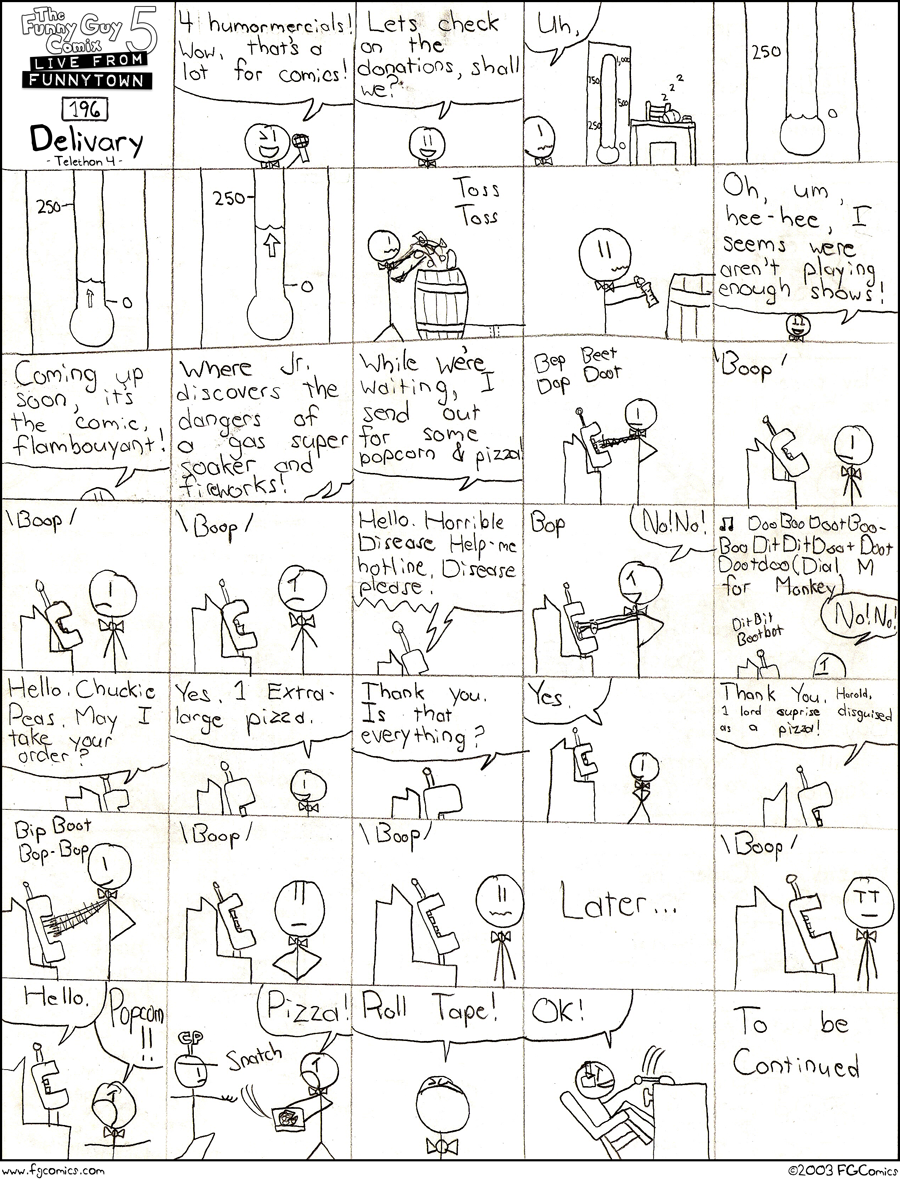 The
Funny Guy
Comix 5
LIVE FROM
FUNNYTOWN
196
Delivary
- Telethon 4 -
4 humormercials!
Wow, that's a
lot for comics!
Lets check
on the
donations, shall
we?
Uh,
1,000
750
500
250
0
z z z
250
0
250
0
250
0
Toss
Toss
Oh, um,
hee-hee, I
seems were
aren't playing
enough shows!
Coming up
soon, it's
the comic,
flambouyant!
Where Jr.
discovers the
dangers of
a gas super
soaker and
fireworks!
While we're
waiting, I
send out
for some
popcorn & pizza!
Bep Beet
Dop Doot
\Boop/
\Boop/
\Boop/
Hello. Horrible
Disease Help-me
hotline. Disease
please.
Bop
No!No!
♫ Doo Boo Doot Boo-
Boo Dit Dit Doot Doot
Dootdoo (Dial M
for Monkey)
Dit Bit
Bootbot
No!No!
Hello. Chuckie
Peas. May I
take your
order?
Yes. 1 Extra-
large pizza.
Thank you.
Is that
everything?
Yes.
Thank You. Harold,
1 lard suprise disguised
as a pizza!
Bip Boot
Bop-Bop
\Boop/
\Boop/
Later...
\Boop/
Hello.
Popcorn
!!
CP
Snatch
Pizza!
Roll Tape!
OK!
To be
Continued
www.fgcomics.com
©2003 FGComics